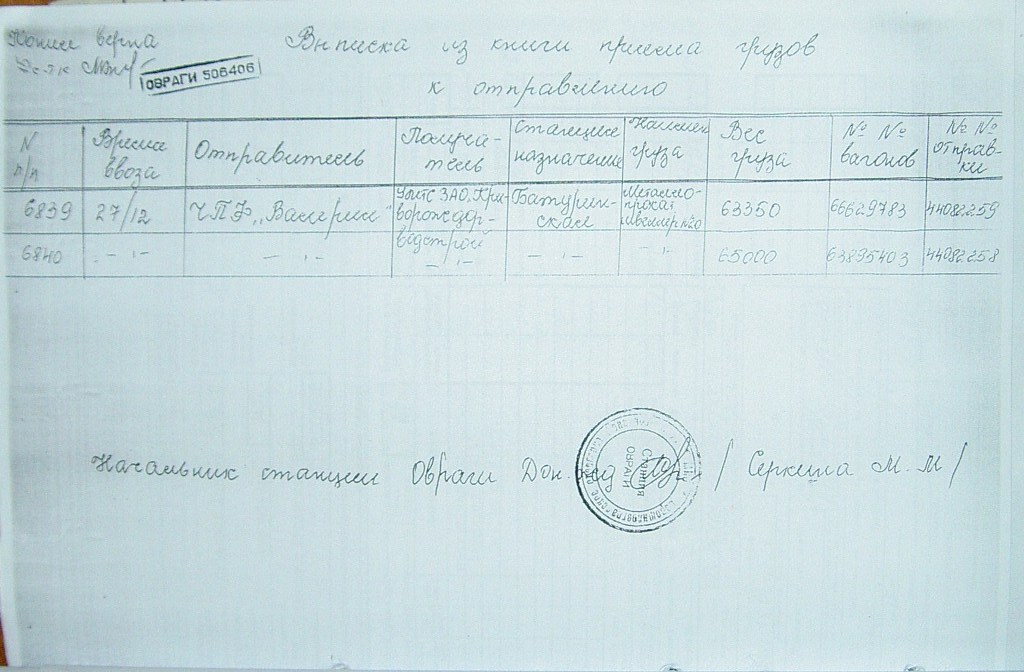 Копия верна
ОВРАГИ 506406
Выписка из книги приема грузов
к отправлению
N п/п
Время ввоза
Отправитель
Получатель
Станция назначения
Наимен груза
Вес груза
№ № вагонов
№ № отправки
6839
27/12
ЧПФ „Валерия"
ЗАО, Кри-
Батуринская
Металло-
прокат
63350
66629783
44082259
6840
- " -
- " -
- " -
- " -
- " -
65000
63895403
44082258
Начальник станции Овраги Дон. / Серкина М. М /
Станция
ОВРАГИ